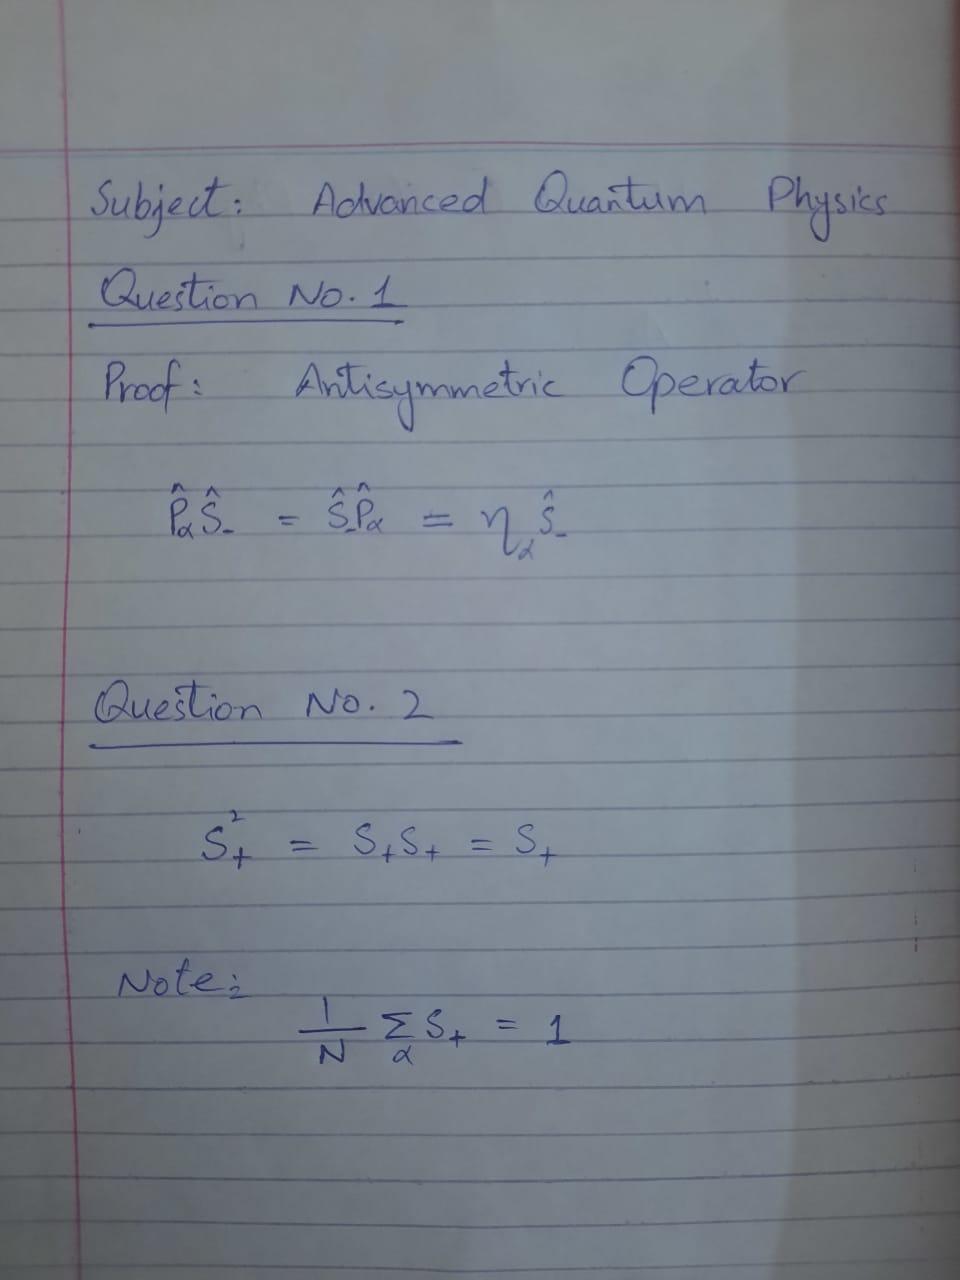 Subject: Advanced Quantum Physics
Question No. 1
Proof: Antisymmetric Operator
P̂α Ŝ₋ = Ŝ₋ P̂α = ηα Ŝ₋
Question No. 2
S₊² = S₊S₊ = S₊
Note:
1/N Σα S₊ = 1